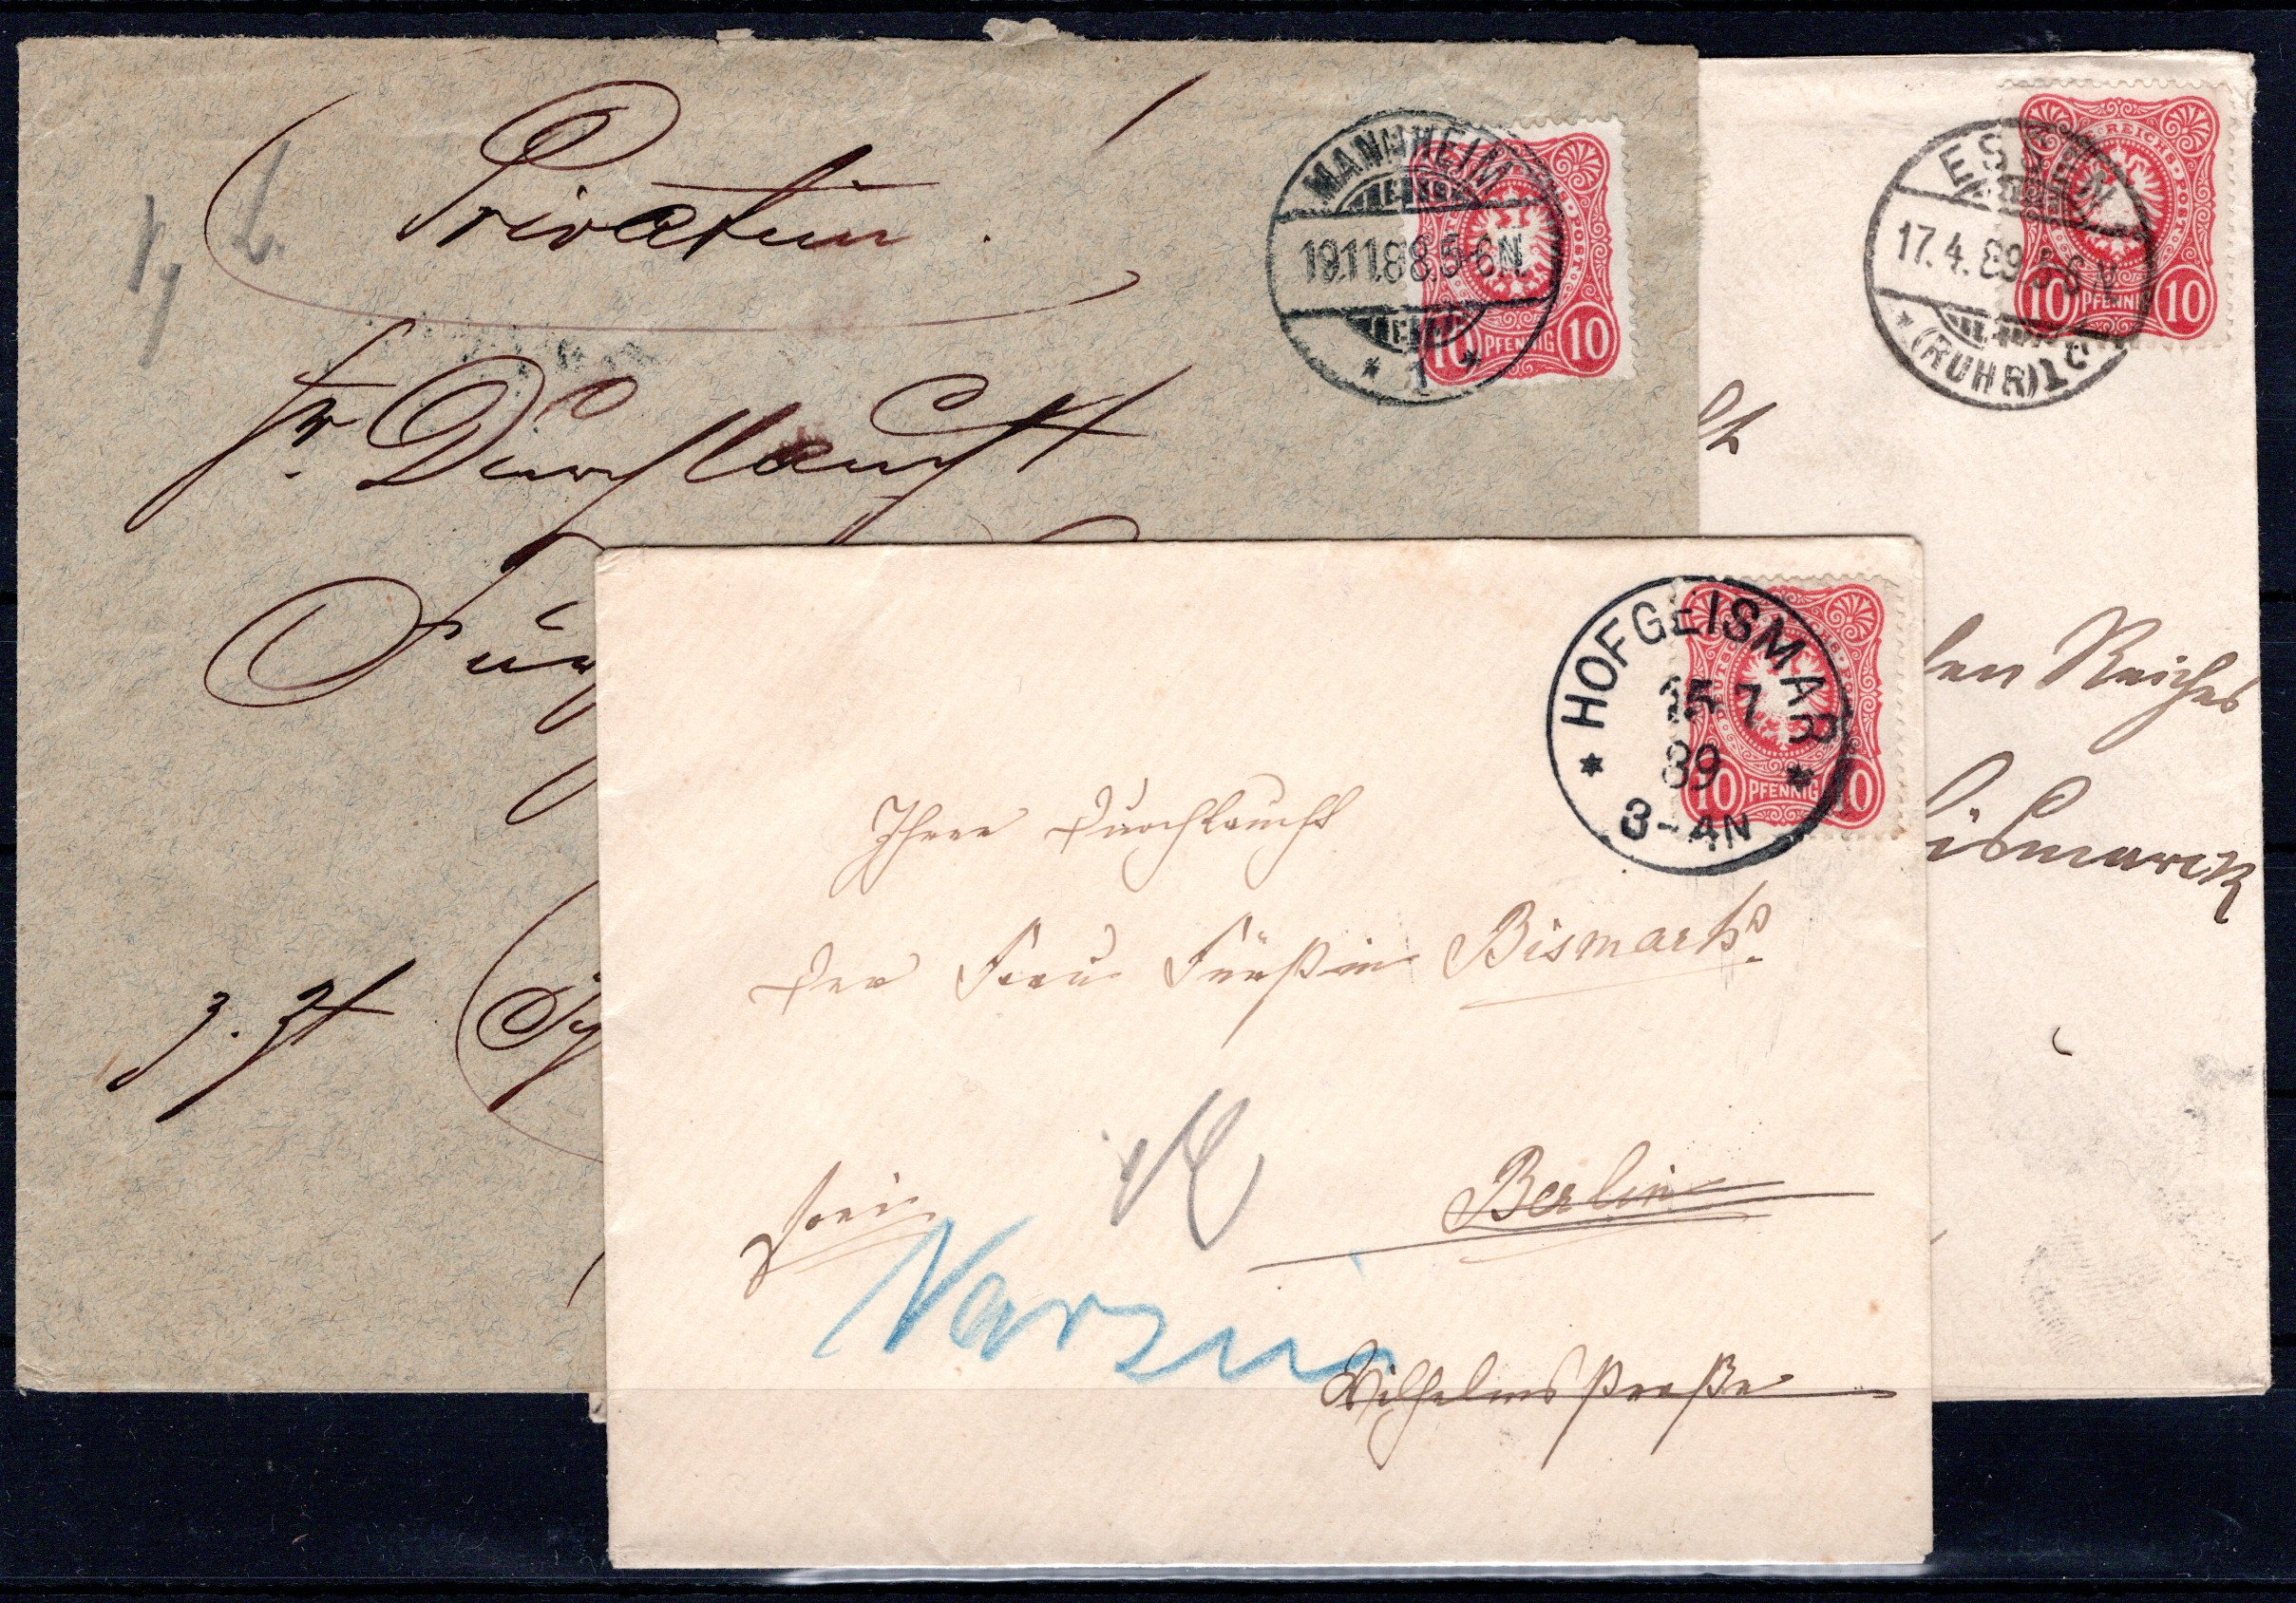 Privatim.
Sr. Durchlaucht
Für
z. Zt
MANNHEIM
19.11.88.5-6N.
* 1 *
10 PFENNIG 10
ESSEN
17.4.89.5-6N
* (RUHR) 1 C
REICHS-POST
10 PFENNIG 10
den Reiches
Bismarck
HOFGEISMAR
15 7
89
* 3-4N *
10 PFENNIG 10
Ihrer Durchlaucht
der Frau Fürstin Bismark.
frei
Berlin
Varzin
Wilhelmstraße